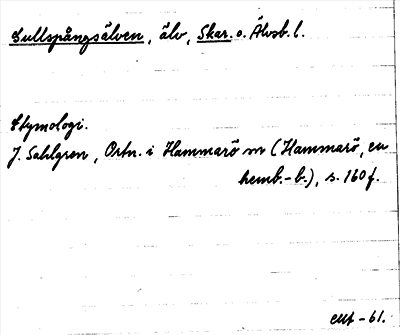 Gullspångsälven, älv, Skar. o. Älvsb. l.
Etymologi.
J. Sahlgren, Ortn. i Hammarö sn (Hammarö, en
hemb.-b.), s. 160 f.
EUt -61.